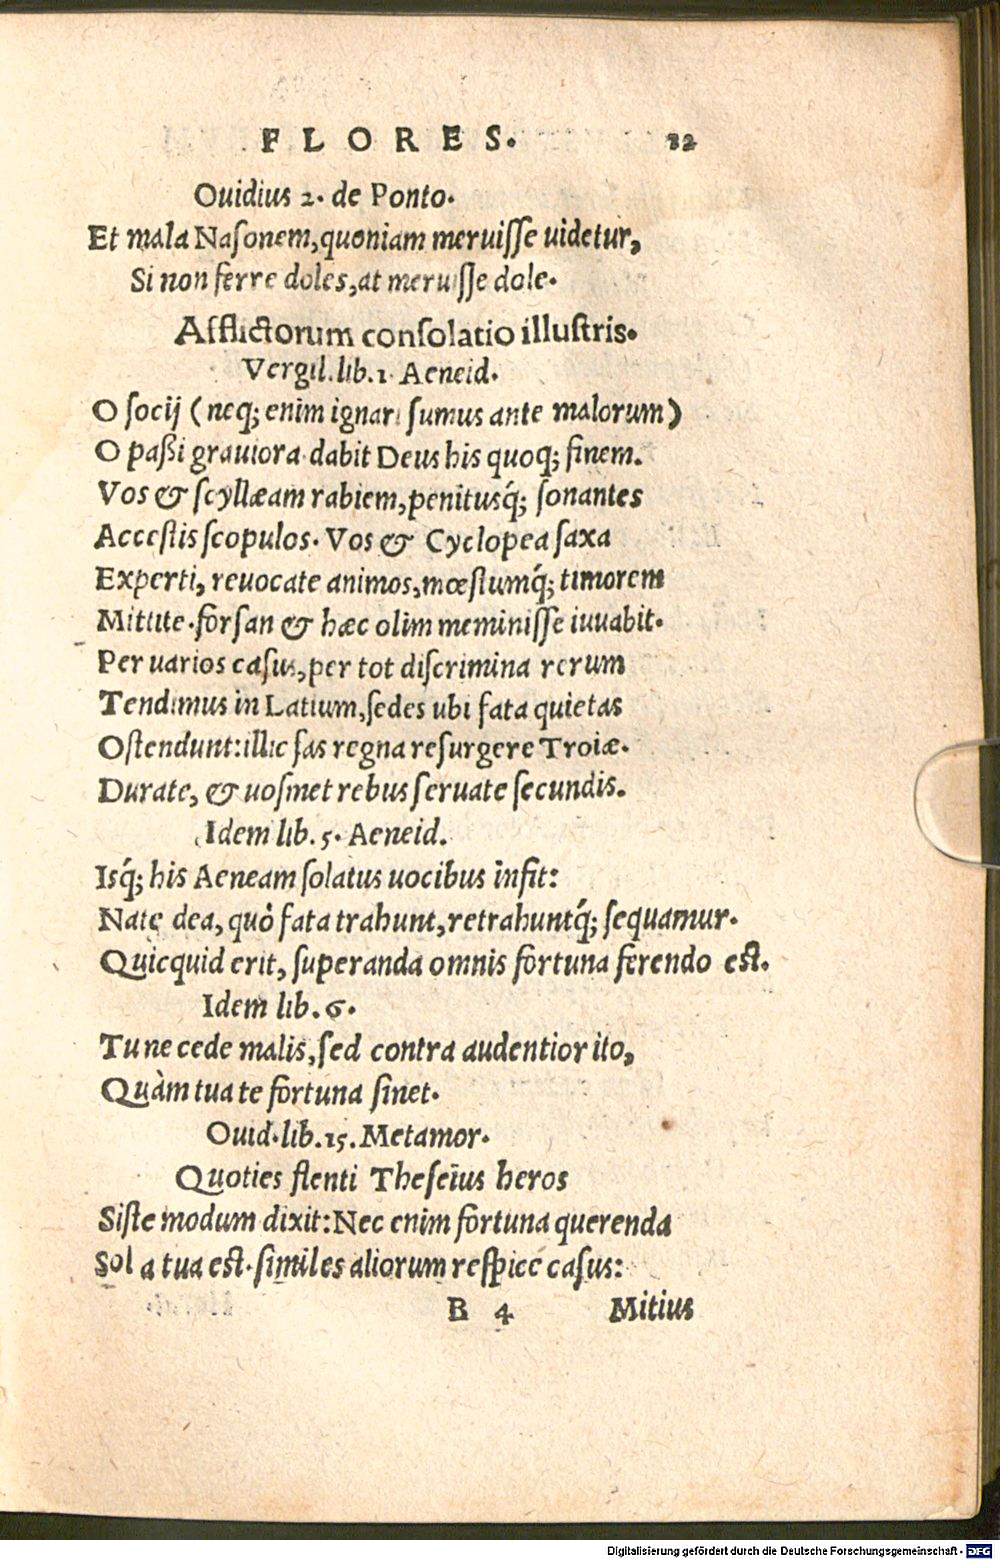 FLORES. 12
Ouidius 2. de Ponto.
Et mala Nasonem, quoniam meruisse uidetur,
Si non ferre doles, at meruisse dole.
Afflictorum consolatio illustris.
Vergil. lib. 1. Aeneid.
O socij (neq; enim ignari sumus ante malorum)
O paßi grauiora dabit Deus his quoq; finem.
Vos & scyllæam rabiem, penitusq́; sonantes
Accestis scopulos. Vos & Cyclopea saxa
Experti, reuocate animos, mœstumq́; timorem
Mittite. forsan & hæc olim meminisse iuuabit.
Per uarios casus, per tot discrimina rerum
Tendimus in Latium, sedes ubi fata quietas
Ostendunt: illic fas regna resurgere Troiæ.
Durate, & uosmet rebus seruate secundis.
Idem lib. 5. Aeneid.
Isq́; his Aeneam solatus uocibus infit:
Nate dea, quò fata trahunt, retrahuntq́; sequamur.
Quicquid erit, superanda omnis fortuna ferendo est.
Idem lib. 6.
Tu ne cede malis, sed contra audentior ito,
Quàm tua te fortuna sinet.
Ouid. lib. 15. Metamor.
Quoties flenti Theseïus heros
Siste modum dixit: Nec enim fortuna querenda
Sola tua est. similes aliorum respice casus:
B 4 Mitius
Digitalisierung gefördert durch die Deutsche Forschungsgemeinschaft - DFG